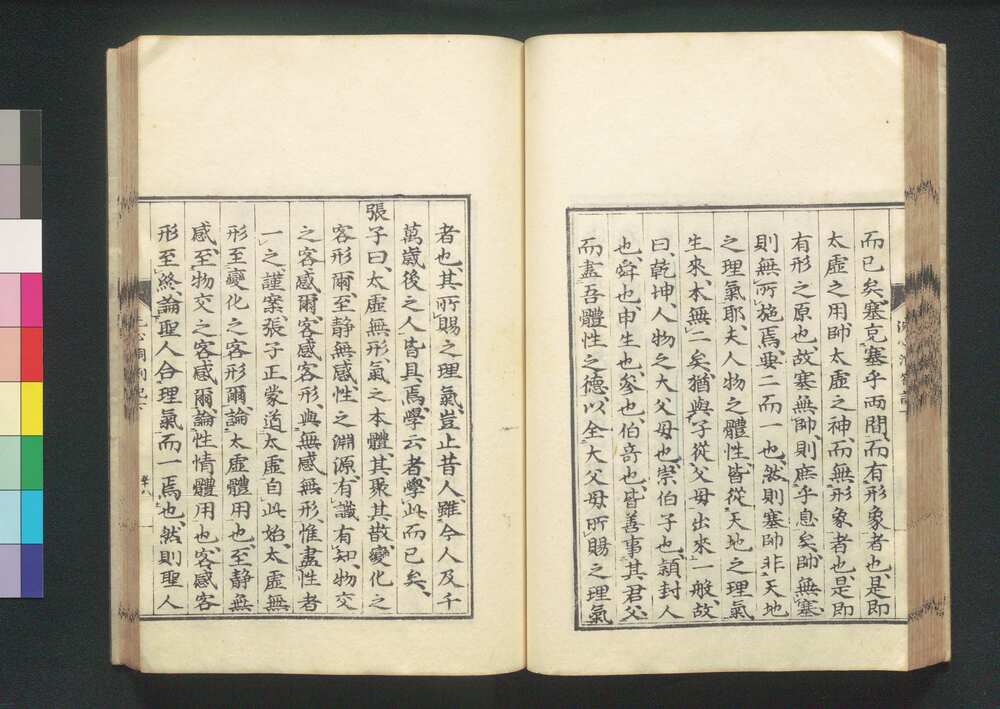 而已矣、塞克塞乎両間、而有形象者也、是即
太虚之用帥、太虚之神、而無形象者也、是即
有形之原也、故塞無帥、則庶乎息矣、帥無塞
則無所施焉、要二而一也、然則塞帥非天地
之理氣耶、夫人物之體性、皆從天地之理氣
生來、本無二矣、猶與子從父母出來一般、故
曰、乾坤、人物之大父母也、崇伯子也、穎封人
也、舜也、申生也、參也、伯奇也、皆善事其君父、
而盡吾體性之德、以全大父母所賜之理氣
者也、其所賜之理氣、豈止昔人、雖今人及千
萬歳後之人、皆具焉、學云者、學此而已矣、
張子曰、太虚無形、氣之本體、其聚其散、變化之
客形爾、至静無感、性之淵源、有識有知、物交
之客感爾、客感客形、與無感無形、惟盡性者
一之、謹案、張子正蒙、道太虚自此始、太虚無
形至變化之客形爾、論太虚體用也、至静無
感、至物交之客感爾、論性情體用也、客感客
形至終、論聖人合理氣而一焉也、然則聖人